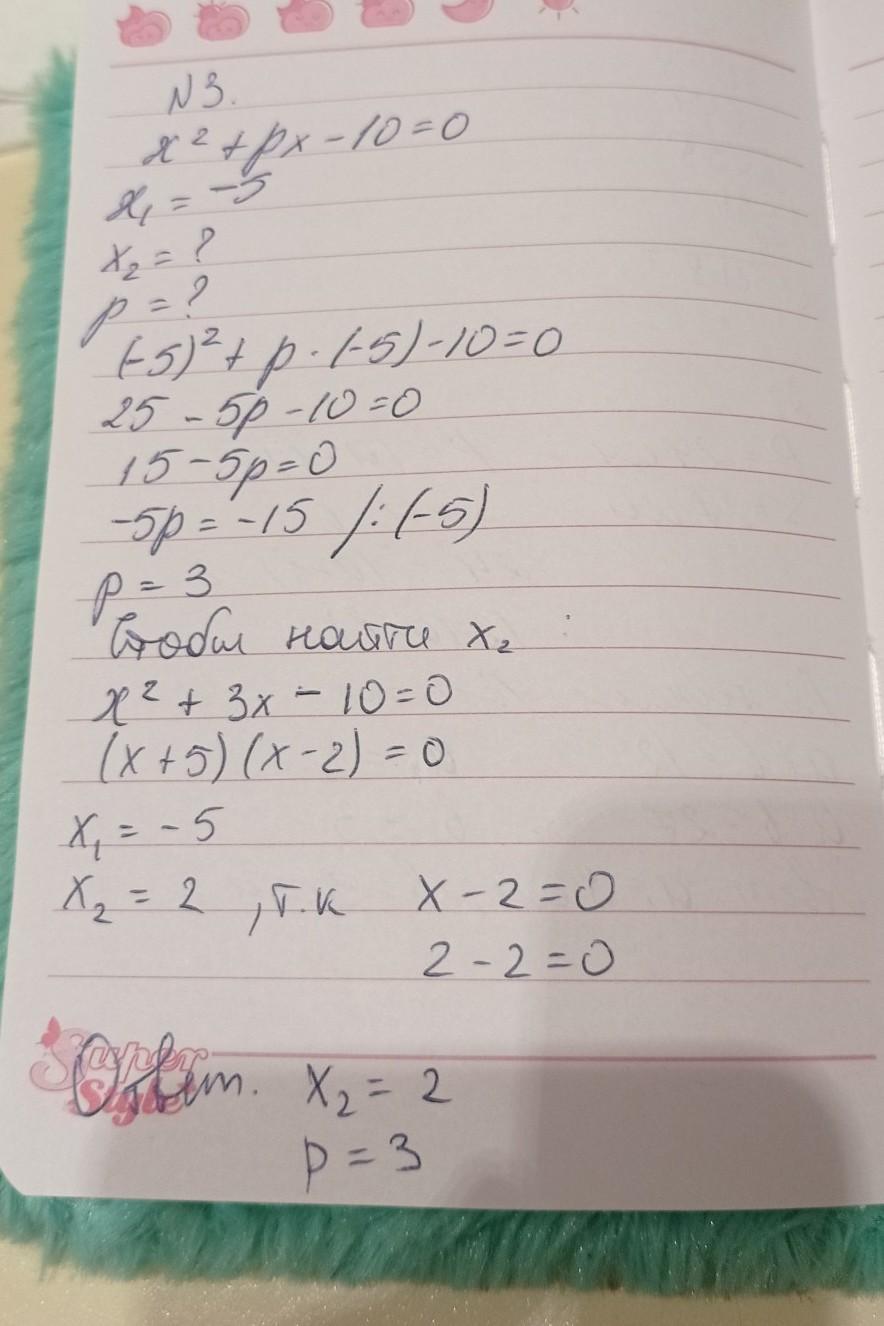 N 3.
x² + px - 10 = 0
x₁ = -5
x₂ = ?
p = ?
(-5)² + p · (-5) - 10 = 0
25 - 5p - 10 = 0
15 - 5p = 0
-5p = -15 /: (-5)
p = 3
Чтобы найти x₂ :
x² + 3x - 10 = 0
(x + 5) (x - 2) = 0
x₁ = -5
x₂ = 2 , т.к x - 2 = 0
2 - 2 = 0
Super
Style
Ответ. x₂ = 2
p = 3